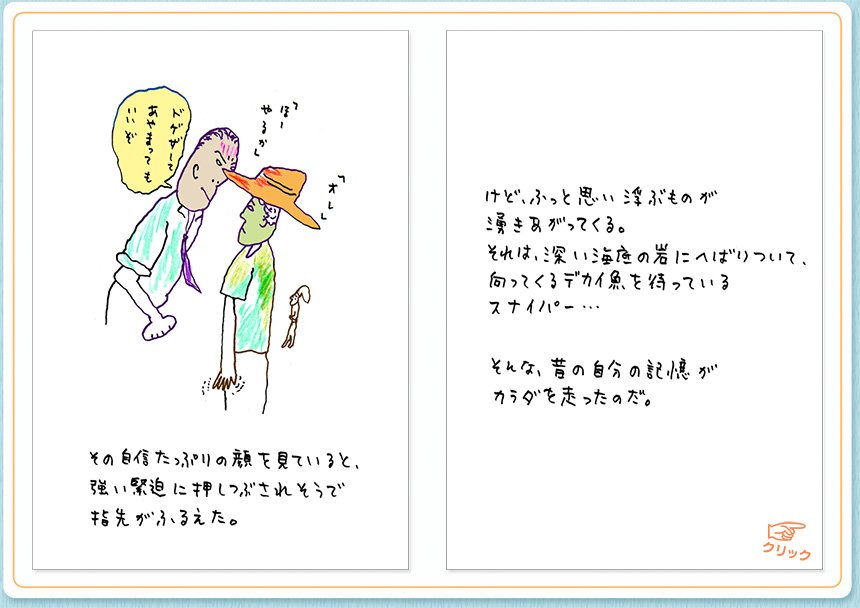 ドゲザして
あやまっても
いいぞ
「ほー
やるか」
「オレ」
その自信たっぷりの顔を見ていると、
強い緊迫に押しつぶされそうで
指先がふるえた。
けど、ふっと思い浮ぶものが
湧きあがってくる。
それは、深い海底の岩にへばりついて、
向ってくるデカイ魚を待っている
スナイパー…
そんな、昔の自分の記憶が
カラダを走ったのだ。
クリック